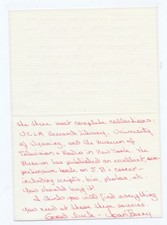 the three most complete collections:
UCLA Research Library, University
of Wyoming, and the Museum of
Television & Radio in New York. The
Museum has published an excellent com-
prehensive book on J.B.'s career -
including scripts, film, photos, et.
You should buy it.
I think you will find everything
you need at these three sources.
Good luck - Joan Benny